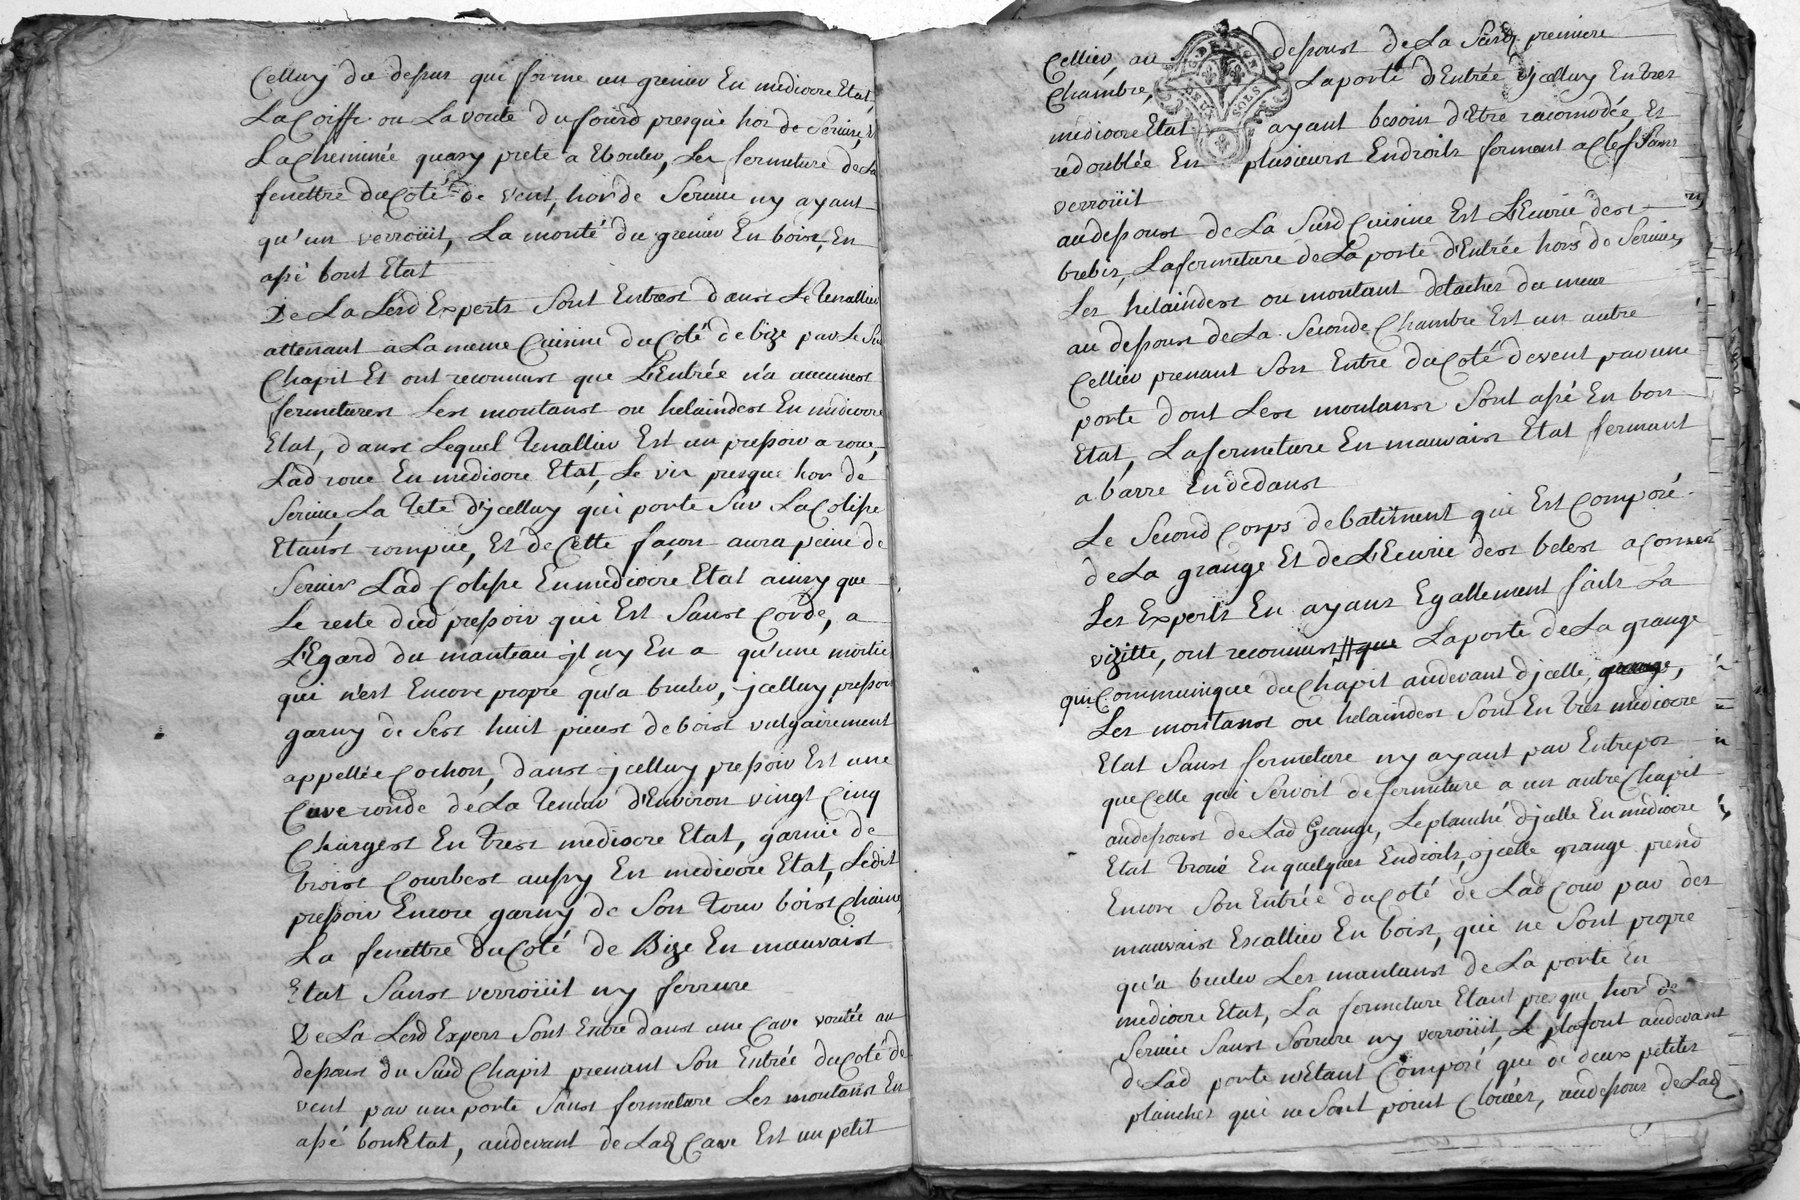 Celluy du dessus qui forme un grenier En mediocre Etat,
La Coiffe ou La voute du fourd presque hor de Service, Et
La Cheminée quasy prete a Ebouler, Les fermeture de La
fenettre du Coté de vent, hor de Service ny ayant
qu'un verroüit, La monté du grenier En boist, En
assé bont Etat
De La Lesd Experts Sont Entrest danst Le Tenallier
attenant a La meme Cuisine du Coté de bize par Le Sud
Chapit Et ont reconnust que L'Entrée n'a aucunest
fermeturest Lest montanst ou helaindest En mediocre
Etat, danst Lequel Tenallier Est un pressoir a roue,
Lad roue En mediocre Etat, Le vis presque hor de
Service, La Tete d'jcelluy qui porte Sur La Colisse
Etanst rompue, Et de Cette façon aura peine de
Servir Lad Colisse En mediocre Etat ainsy que
Le reste dud pressoir qui Est Sanst Corde, a
L'Egard du manteau jl ny En a qu'une moitié
qui n'est Encore propre qu'a bruler, jcelluy pressoir
garny de Sest huit piecest de boist vulgairement
appellée Cochon, danst jcelluy pressoir Est une
Cuve ronde de La Teneur d'Environ vingt Cinq
Chargest En trest mediocre Etat, garnie de
troist Courbest aussy En mediocre Etat, Ledit
pressoir Encore garny de Son Tour boist Chaine,
La fenettre du Coté de Bize En mauvaist
Etat Sanst verroüit ny ferrure
De La Lesd Expers Sont Entré danst une Cave voutée au
dessoust du Susd Chapit prenant Son Entrée du Coté de
vent par une porte Sanst fermeture Les montanst En
assé bon Etat, audevant de Lad Cave Est un petit
Cellier, au dessoust de La Susd premiere
Chambre, La porte d'Entrée d'jcelluy En tres
mediocre Etat ayant besoin d'Etre racomodée, Et
redoublée En plusieurst Endroits fermant a Clef Sanst
verroüit
audessoust de La Susd Cuisine Est L'Ecurie dest
brebis, La fermeture de La porte d'Entrée hors de Service,
Les helaindest ou montant detachez du meur
au dessoust de La Seconde Chambre Est un autre
Cellier prenant Son Entré du Coté devent par une
porte dont Lest montanst Sont assé En bon
Etat, La fermeture En mauvaist Etat fermant
a barre En dedanst
Le Second Corps de batiment qui Est Composé
de La grange Et de L'Ecurie dest betest a Cornes
Les Experts En ayans Egallement faits La
vizitte, ont reconnust que La porte de La grange
qui Communique du Chapit audevant d'jcelle, grange,
Les montanst ou helaindest Sont En tres mediocre
Etat Sanst fermeture ny ayant par Entrepos
que Celle qui Servoit de fermeture a un autre Chapit
audessoust de Lad Grange, Le planché d'jcelle En mediocre
Etat Troué En quelques Endroits, jcelle grange prend
Encore Son Entrée du Coté de Lad Cour par des
mauvaist Escallier En boist, qui ne Sont propre
qu'a bruler Les montanst de La porte En
mediocre Etat, La fermeture Etant presque hor de
Service Sanst Serrure ny verroüit, Le plafont audevant
de Lad porte n'Etant Composé que de deux petites
planches qui ne Sont point Clouées, audessous de Lad
G. BESAYCON
DEUX SOLS